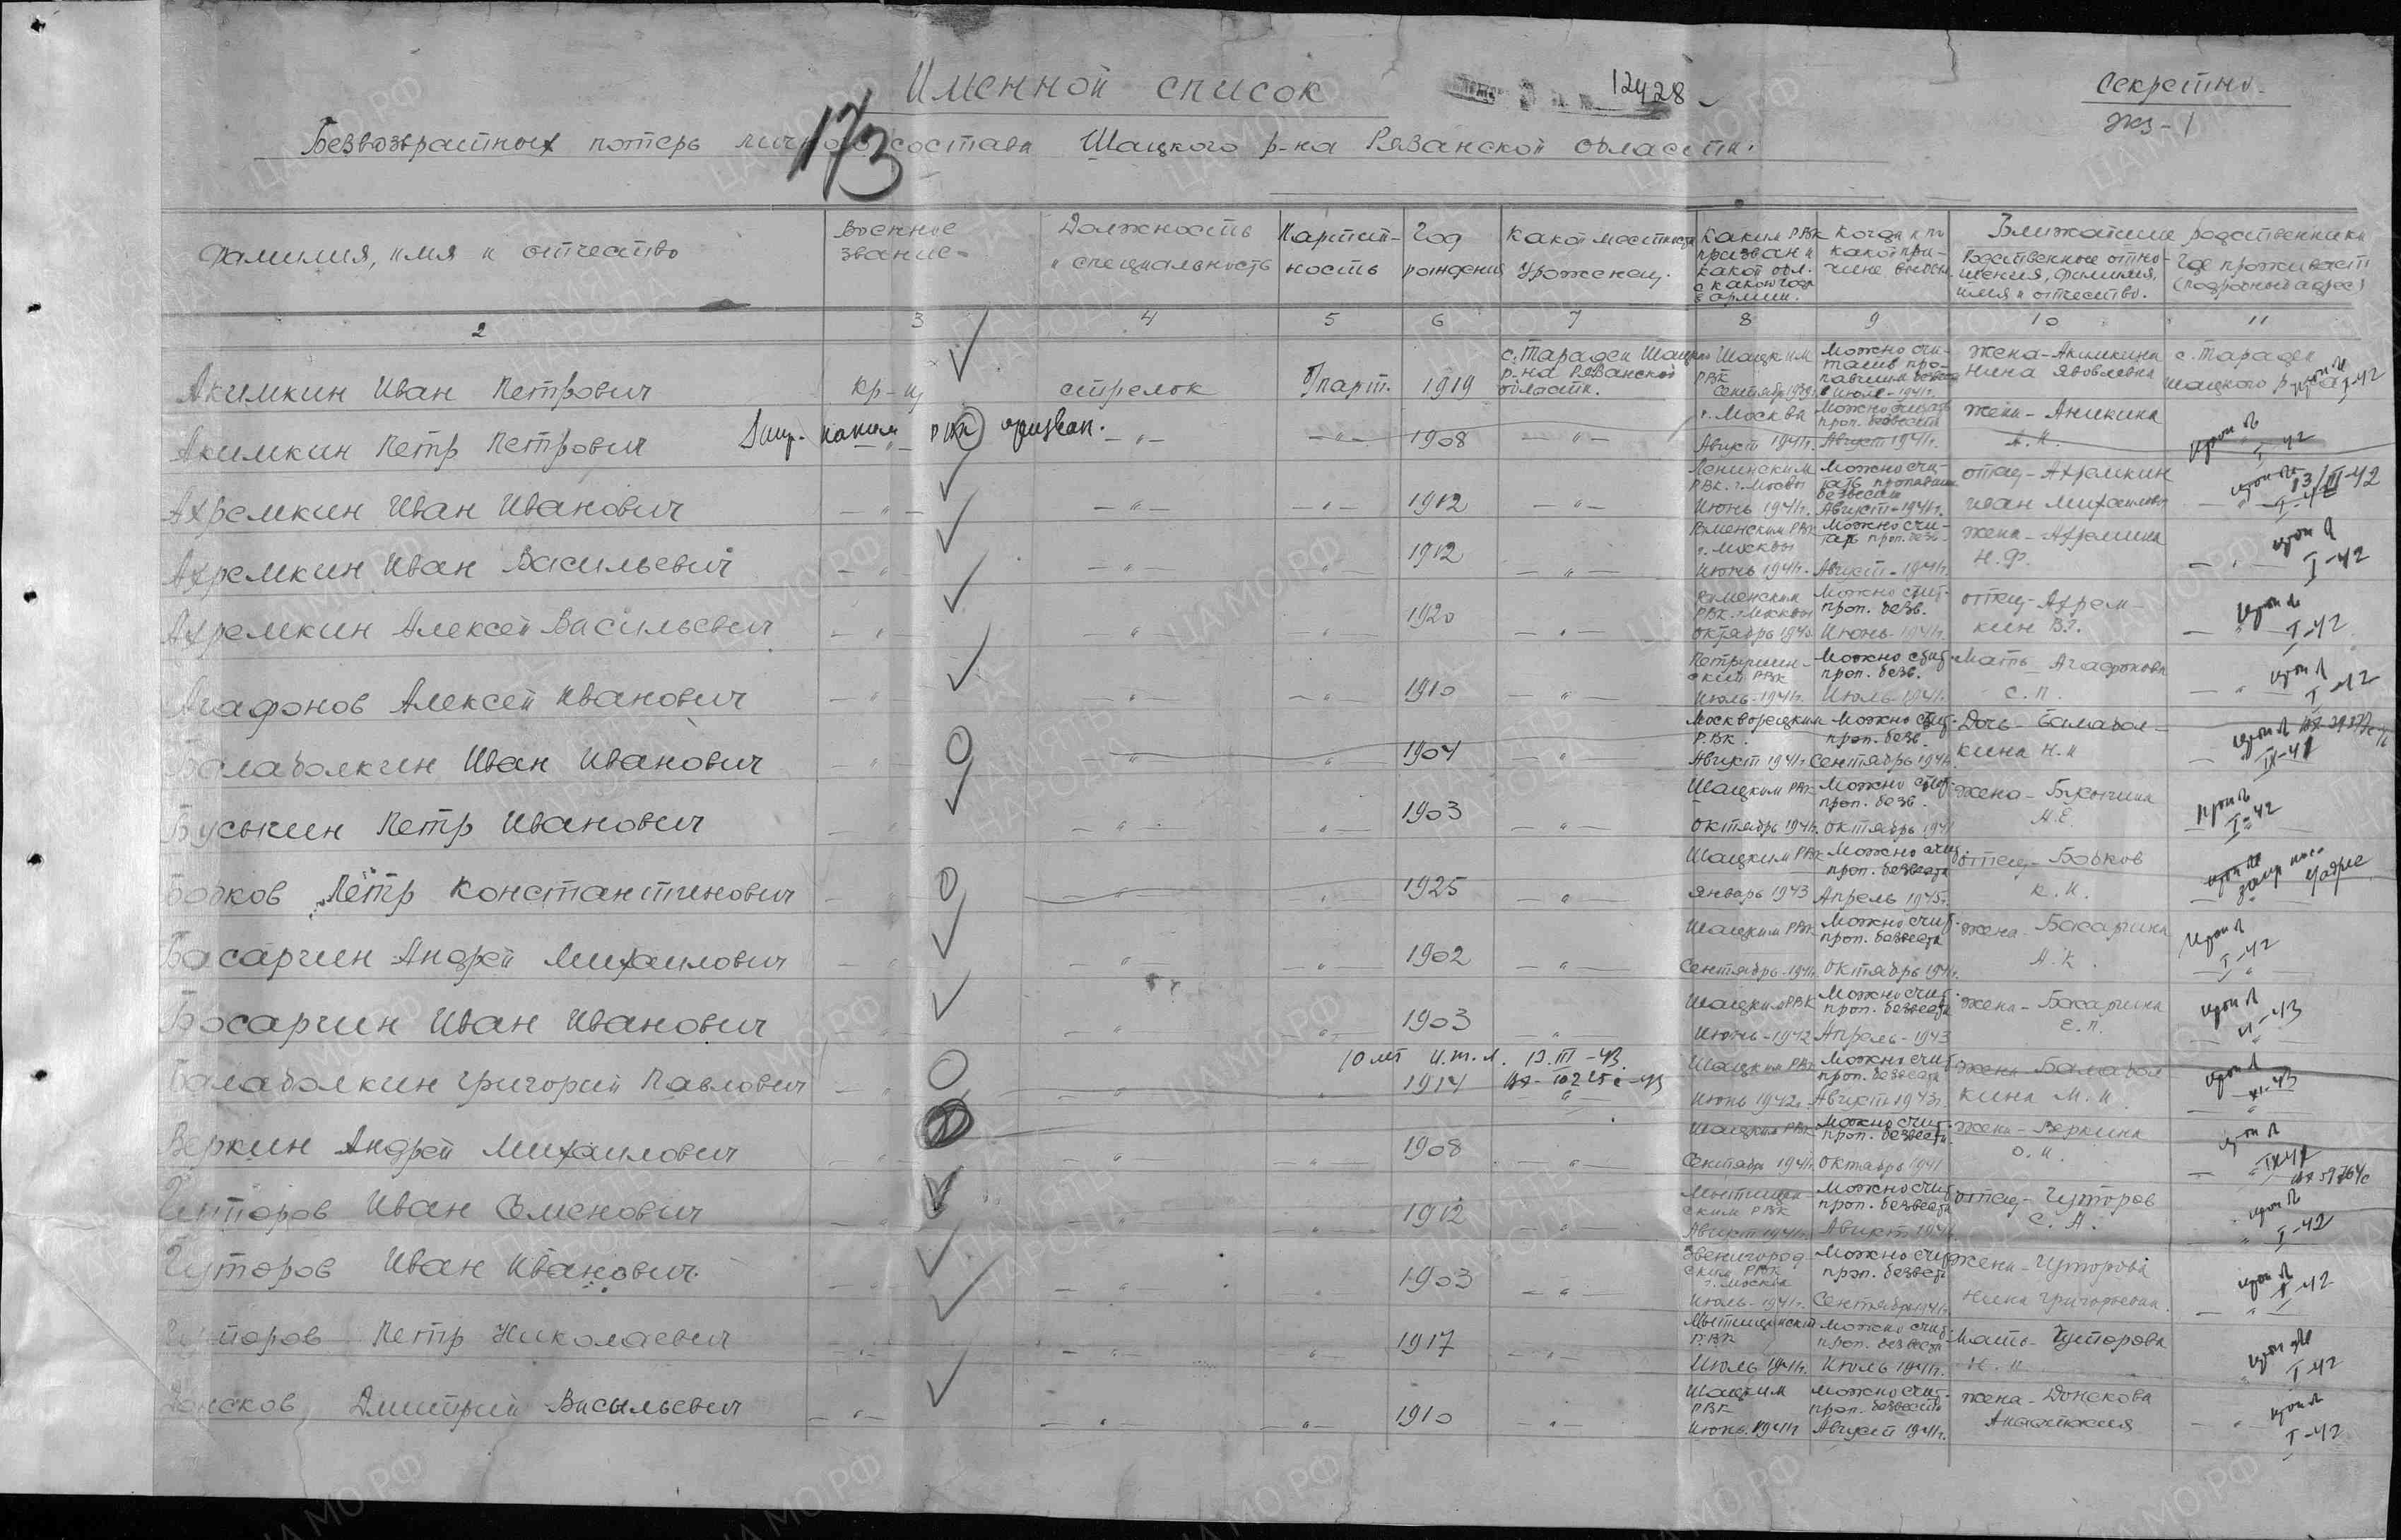 Именной список
12428
Секретно
Экз-1
173
Безвозвратных потерь личного состава Шацкого р-на Рязанской области.
Фамилия, имя и отчество
Военное звание
Должность и специальность
Партийность
Год рождения
Какой местности уроженец.
Каким РВК призван и какой обл. с какого года в армии.
Когда и по какой причине выбыл
Ближайшие родственники
Родственные отношения, фамилия, имя и отчество.
Где проживает (подробный адрес)
2 3 4 5 6 7 8 9 10 11
Акимкин Иван Петрович кр-ц стрелок б/парт. 1919 с. Тарадеи Шацкого р-на Рязанской области. Шацким РВК Сентябрь 1939г. Можно считать пропавшим безвести в Июле-1941г. жена-Акимкина Нина Яковлевна с. Тарадеи Шацкого р-на I-42
Акимкин Петр Петрович каким РВК призван. -"- 1908 -"- г. Москва Август 1941г. Можно считать проп. безвести Август 1941г. жена-Акимкина I-42
Ахремкин Иван Иванович -"- -"- -"- 1912 -"- Ленинским РВК. г. Москвы Июнь 1941г. Можно считать пропавшим безвести Август-1941г. отец-Ахремкин Иван Михайлович -"- I-42 13/III-42
Ахремкин Иван Васильевич -"- -"- " 1912 -"- РВК г. Москвы Июнь 1941г. Можно считать проп. безв. Август-1941г. жена-Ахремкина Н.Ф. -"- I-42
Ахремкин Алексей Васильевич -"- " " 1920 -"- РВК г. Москвы октябрь 1940 Можно счит. проп. безв. Июнь-1941г. отец-Ахремкин В.Г. -"- I-42
Агафонов Алексей Иванович -"- -"- -"- 1910 -"- РВК Июль-1941г. Можно счит. проп. безв. Июль-1941г. Мать-Агафонова С.П. -"- I-42
Балаболкин Иван Иванович -"- -"- " 1904 -"- Москворецким Р.ВК. Август 1941г. Можно счит. проп. безв. Сентябрь 1941г. Дочь-Балаболкина Н.И -"- IX-41
Буськин Петр Иванович -"- -"- " 1903 -"- Шацким РВК октябрь 1941г. Можно счит. проп. безв. октябрь 1941 жена- I-42
Бобков Пётр Константинович -"- -"- " 1925 -"- Шацким РВК январь 1943 Можно счит. проп. безвести Апрель 1945г. отец-Бобков К.И.
Басаргин Андрей Михайлович -"- -"- -"- 1902 -"- Шацким РВК Сентябрь-1941г. Можно счит. проп. безвести октябрь 1941г. жена-Басаргина А.К. I-42
Басаргин Иван Иванович -"- -"- -"- 1903 " Шацким РВК Июнь-1942 Можно счит. проп. безвести Апрель-1943 жена-Басаргина Е.П. VI-43
10 лет И.Т.Л. 13.III-43.
Балаболкин Григорий Павлович -"- -"- " 1914 " Шацким РВК Июнь 1942г. Можно счит. проп. безвести Август 1943г. жена-Балаболкина М.И. XI-43
Веркин Андрей Михайлович -"- -"- -"- 1908 -"- Шацким РВК Сентябрь 1941г. Можно счит. проп. безвести. октябрь 1941 жена-Веркина О.И.
Гуторов Иван Семенович -"- -"- " 1912 " РВК Август 1941г. Можно счит. проп. безвести Август 1941г. отец-Гуторов С.А. I-42
Гуторов Иван Иванович. -"- -"- " 1903 -"- Звенигородским РВК г. Москва Июль-1941г. Можно счит проп. безвести Сентябрь 1941г. жена-Гуторова Нина Григорьевна. -"- I-42
Гуторов Петр Николаевич -"- -"- -"- 1917 -"- Мытищинским РВК Июль 1941г. Можно счит. проп. безвести Июль 1941г. Мать-Гуторова Н.И. I-42
Донсков Дмитрий Васильевич -"- -"- -"- 1910 -"- Шацким РВК Июнь 1941г Можно счит. проп. безвести Август 1941г. жена-Донскова Анастасия -"- I-42
ЦАМО РФ
ПАМЯТЬ НАРОДА